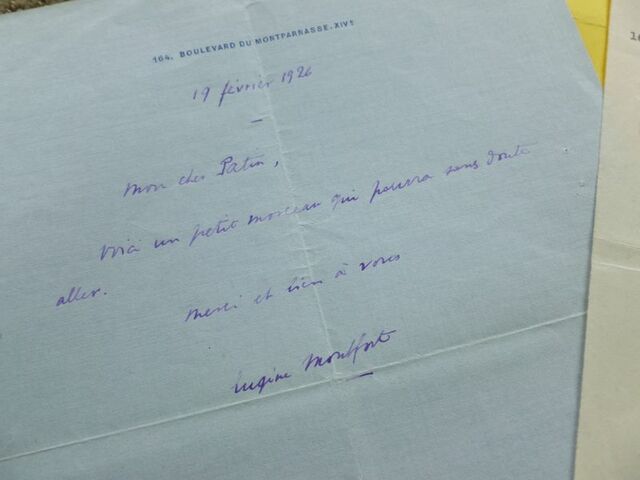 164, BOULEVARD DU MONTPARNASSE. XIVe
19 février 1926
Mon cher Patin,
Voici un petit morceau qui pourra sans doute
aller.
Merci et bien à vous
Eugène Montfort
16